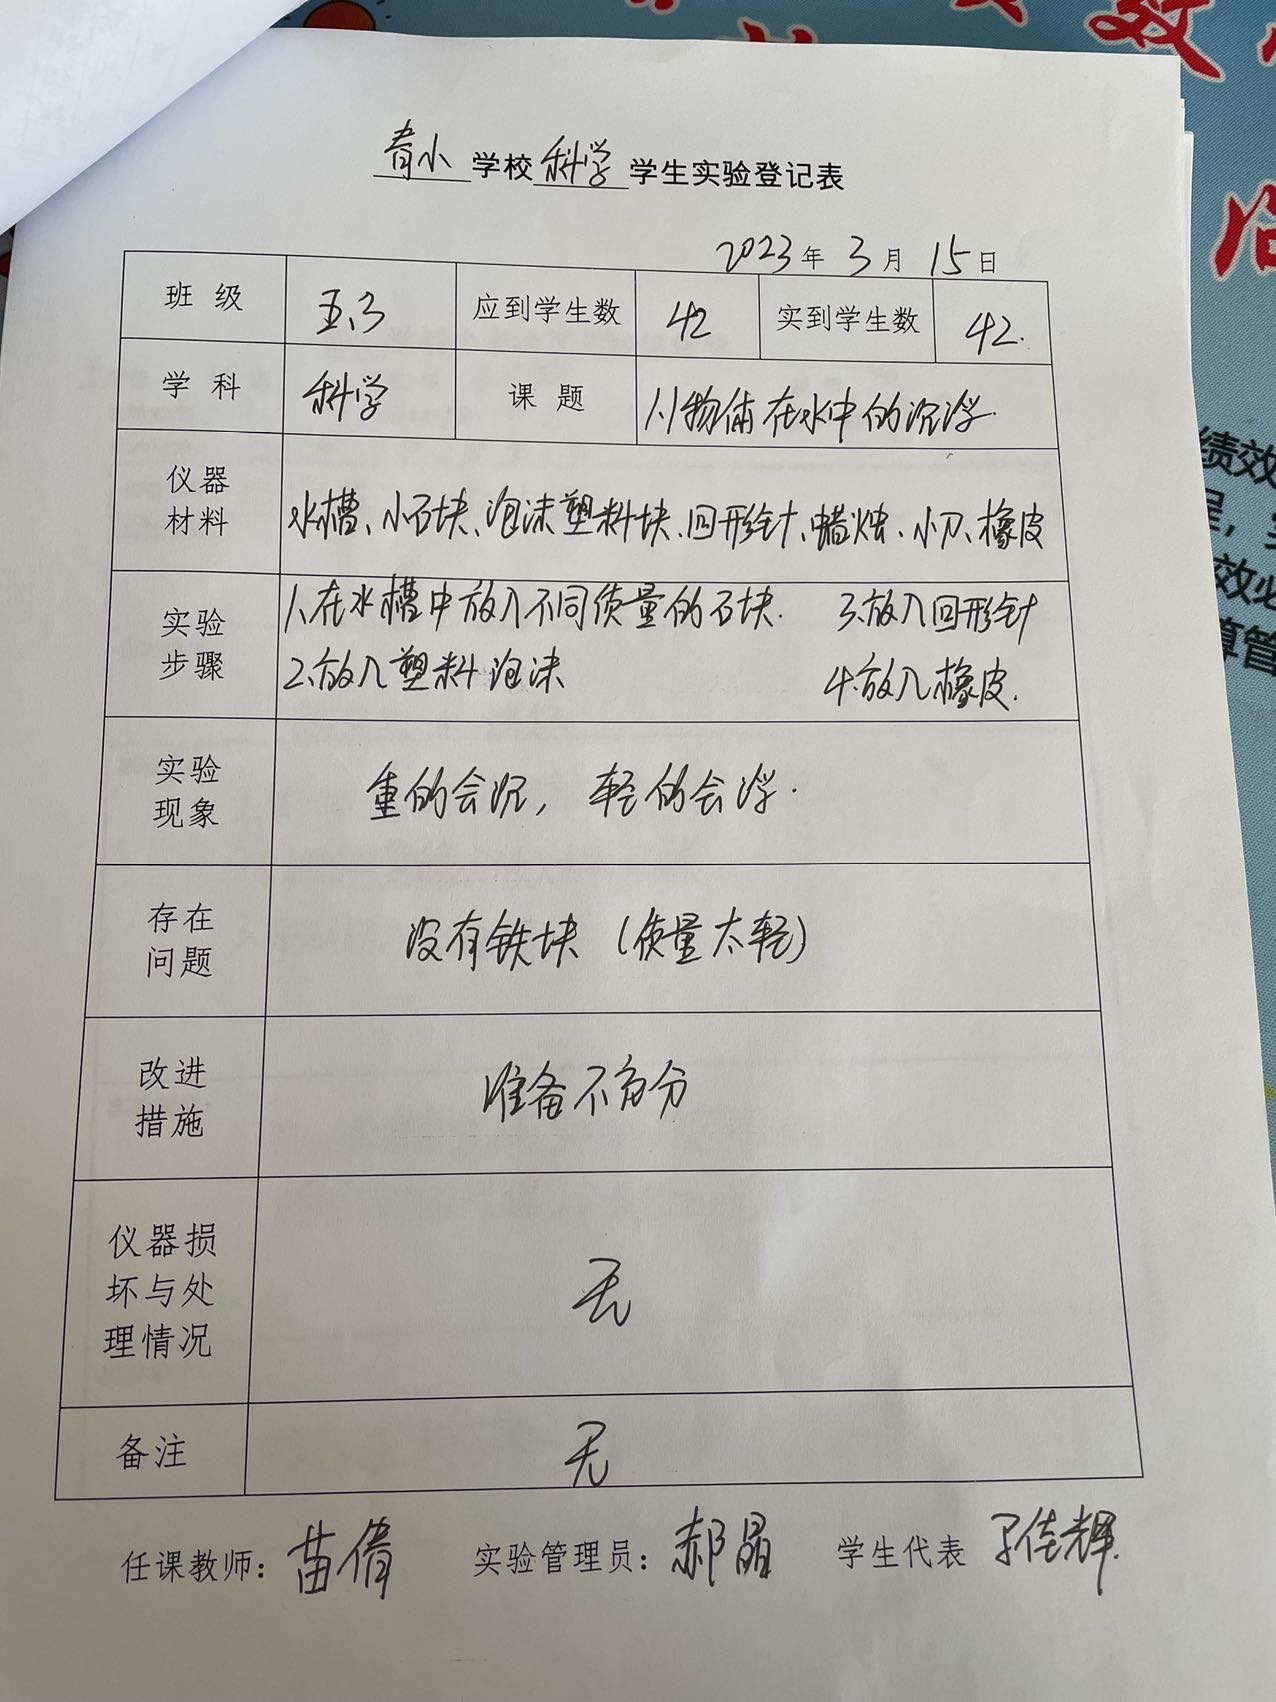 育小学校科学学生实验登记表
2023年3月15日
班级 五.3 应到学生数 42 实到学生数 42.
学科 科学 课题 1.1物体在水中的沉浮.
仪器材料 水槽、小石块、泡沫塑料块、回形针、蜡烛、小刀、橡皮
实验步骤
1、在水槽中放入不同质量的石块. 3.放入回形针
2.放入塑料泡沫 4.放入橡皮.
实验现象 重的会沉，轻的会浮.
存在问题 没有铁块（质量太轻）
改进措施 准备不充分
仪器损坏与处理情况 无
备注 无
任课教师：苗倩 实验管理员：郝晶 学生代表 佳辉.
绩效
效必
算管